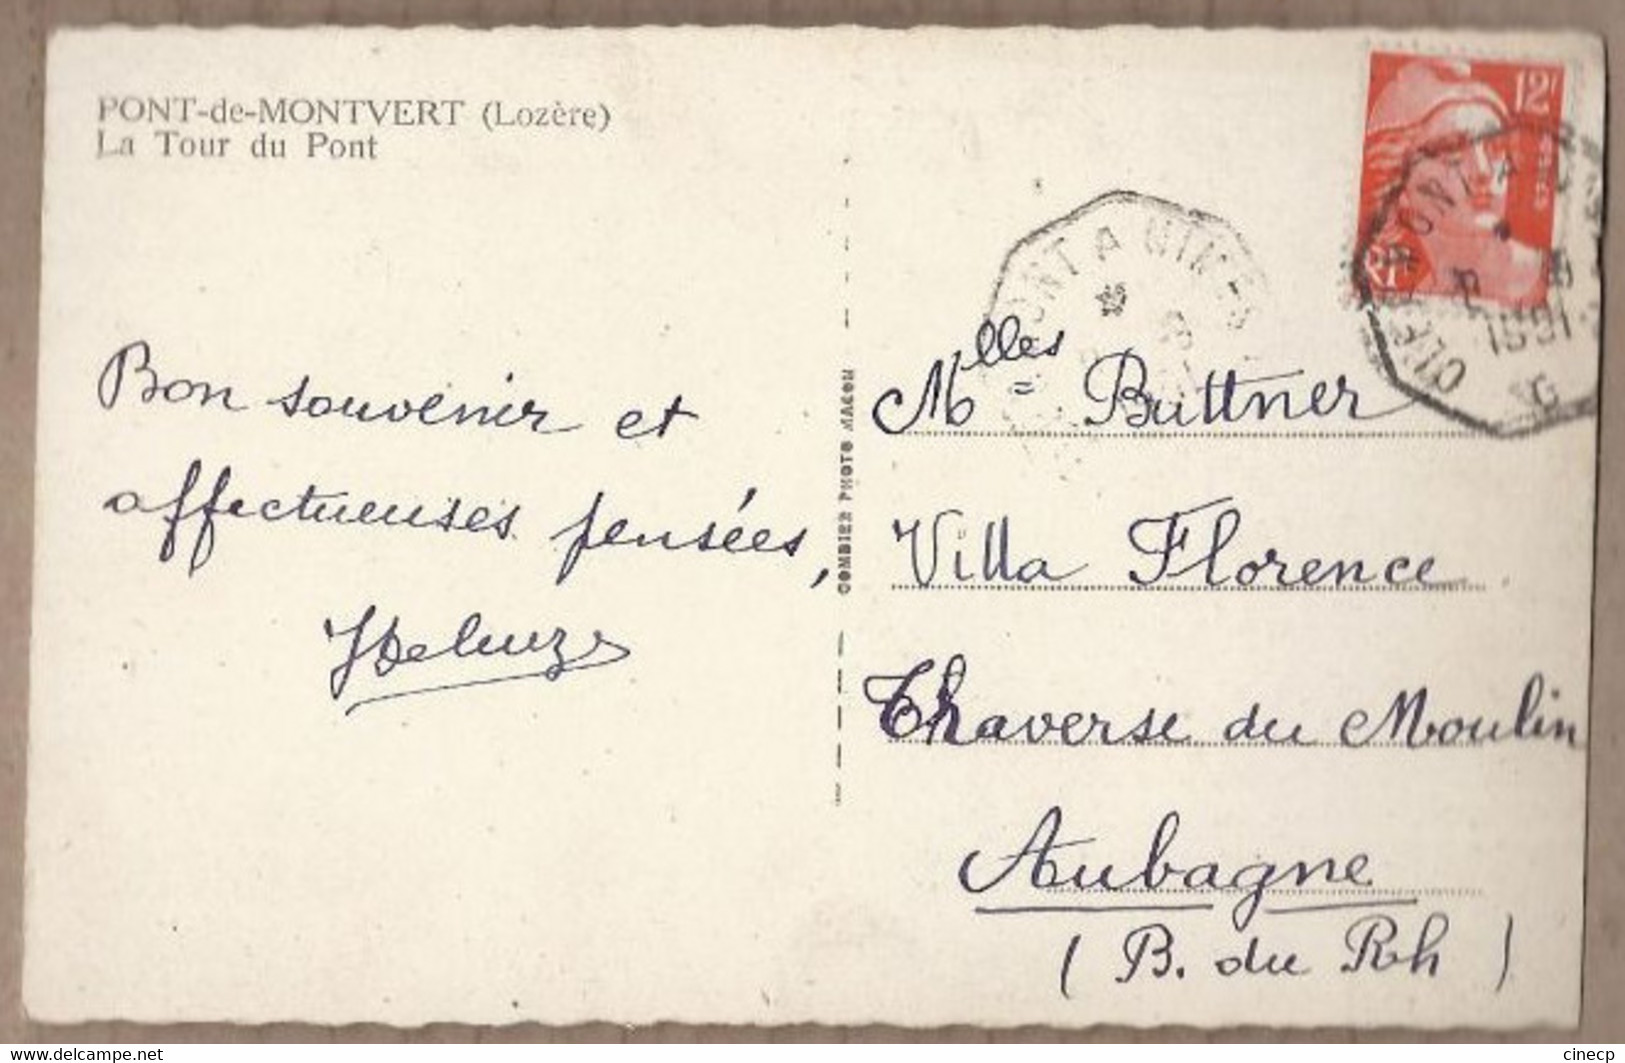 PONT-de-MONTVERT (Lozère)
La Tour du Pont
Bon souvenir et
affectueuses pensées,
COMBIER PHOTO MACON
12F
RF
CLERMONT A
1951
ONT A NIMES
Mlles Buttner
Villa Florence
Thaverse du Moulin
Aubagne
( B. du Rh )
www.delcampe.net
cinecp